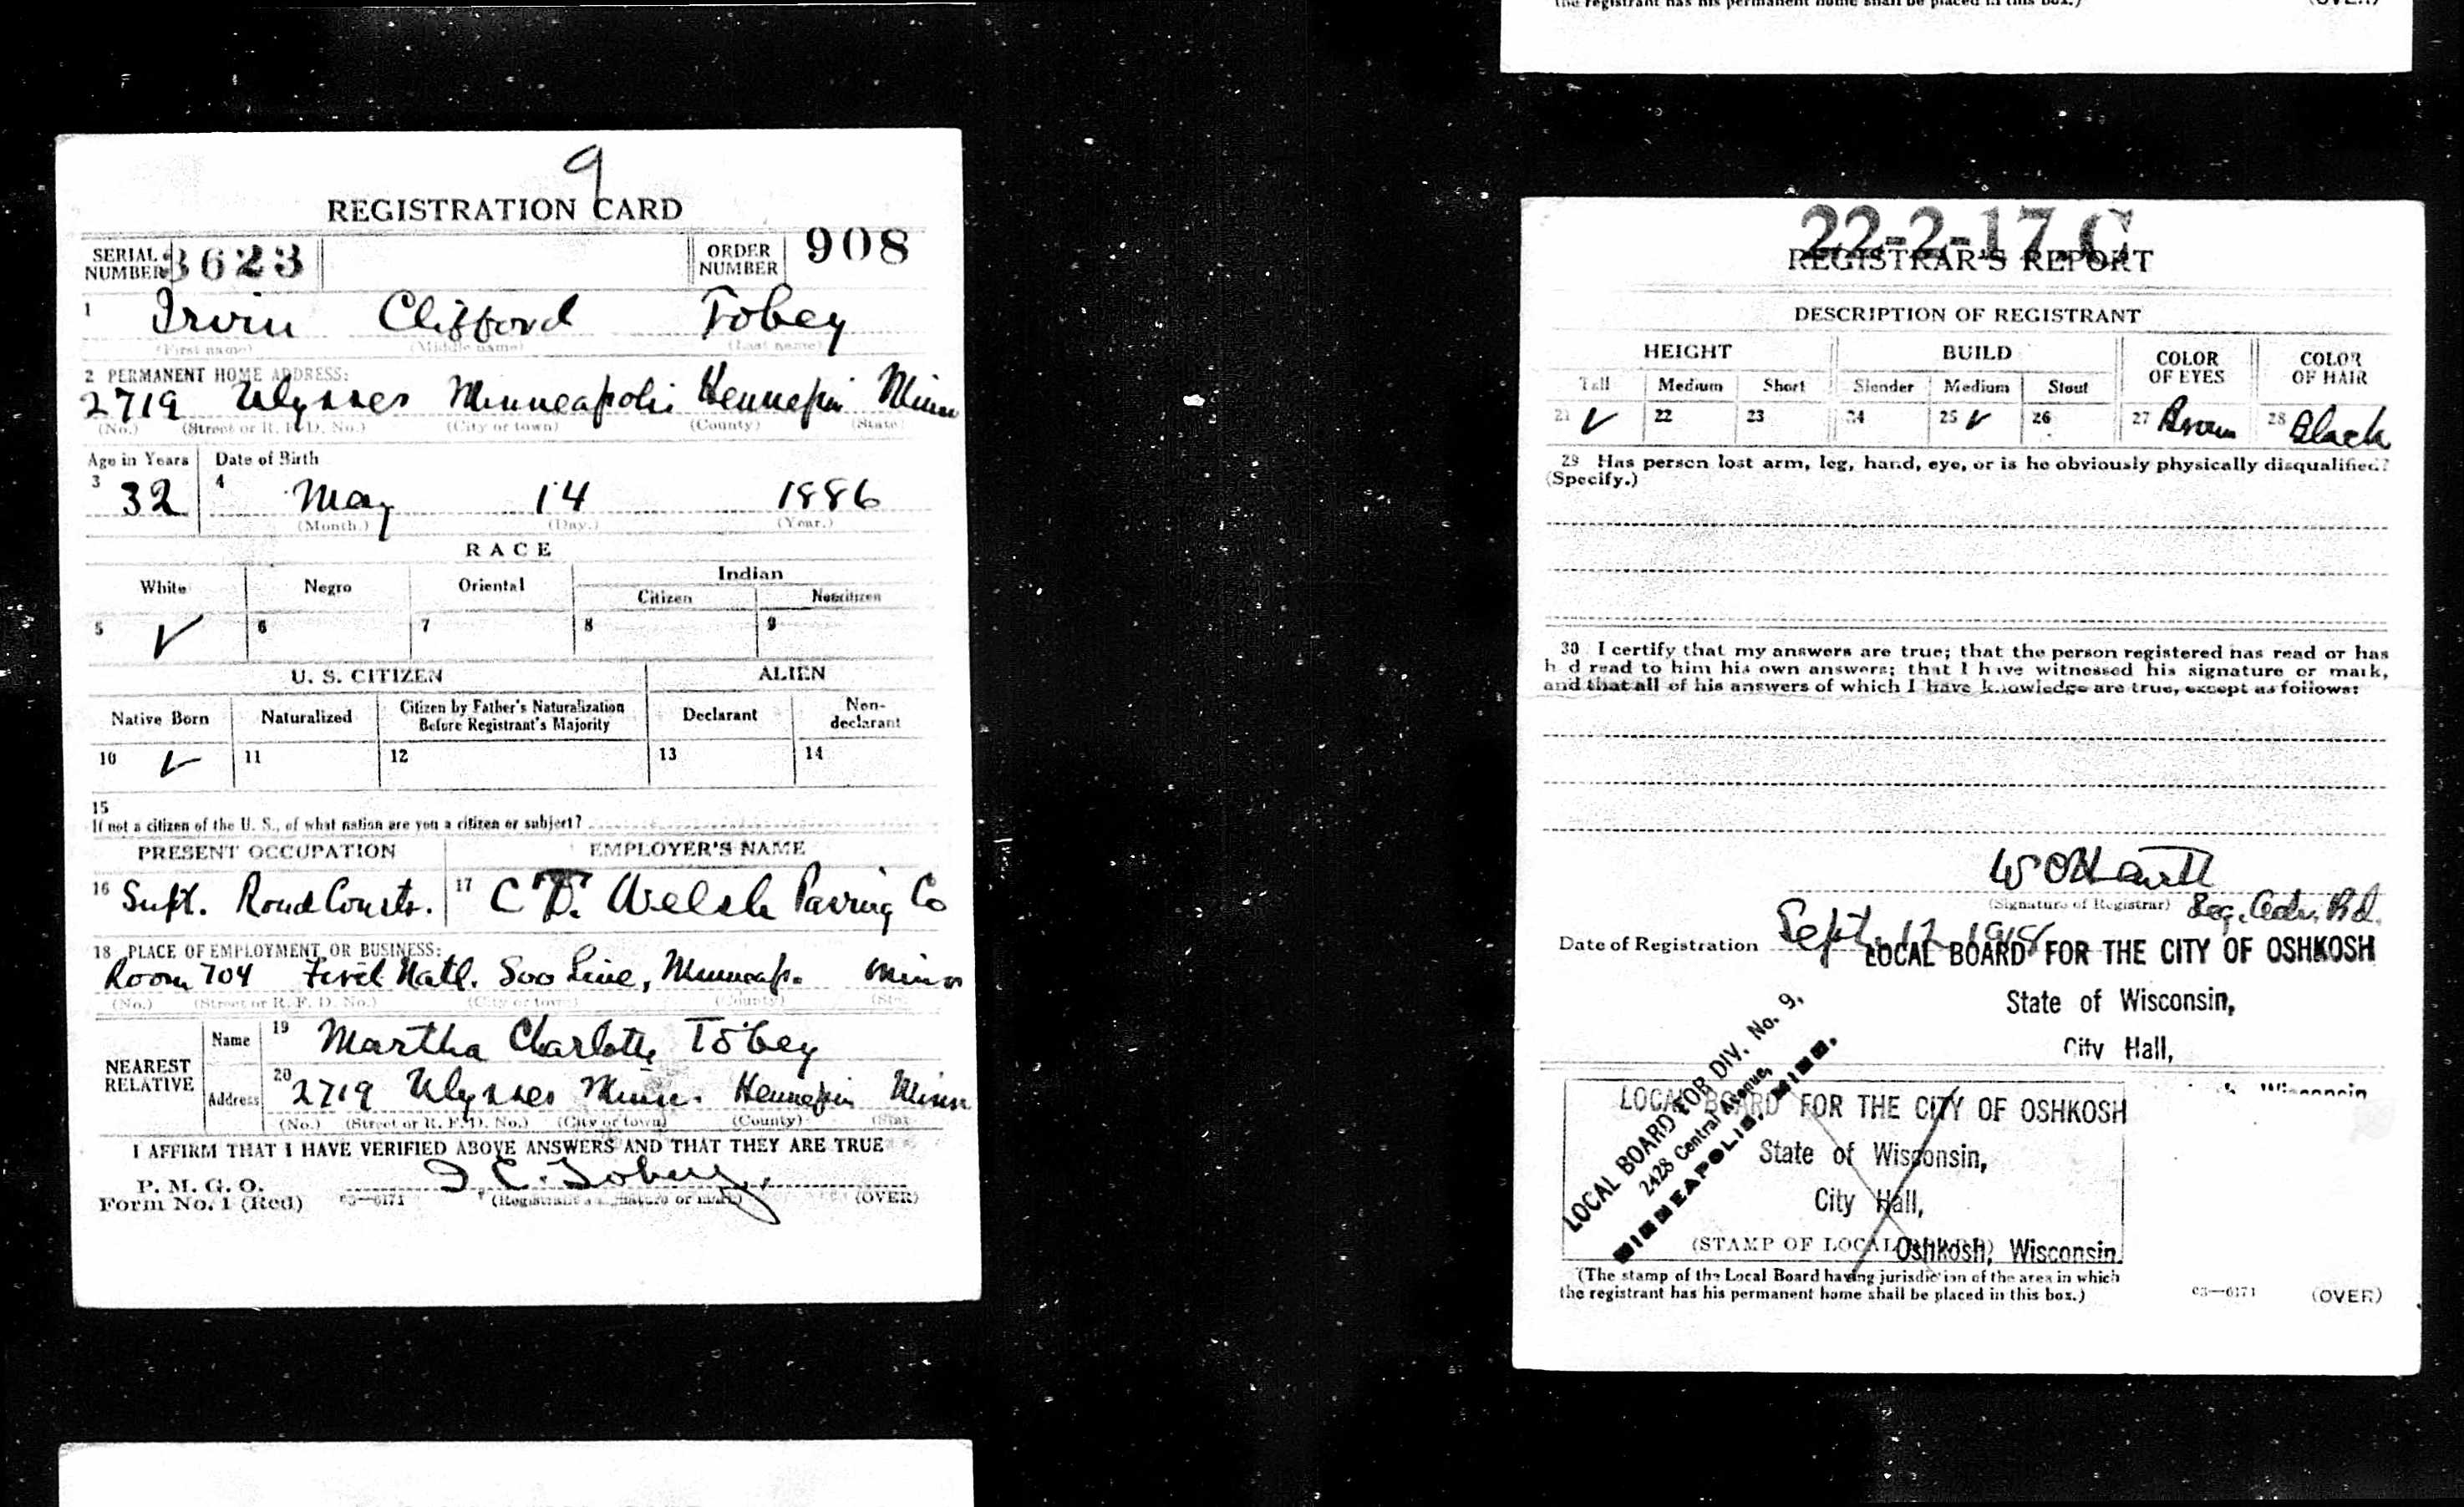 9
REGISTRATION CARD
SERIAL NUMBER 3623 ORDER NUMBER 908
1 Irvin Clifford Tobey
(First name) (Middle name) (Last name)
2 PERMANENT HOME ADDRESS:
2719 Ulysses Minneapolis Hennepin Minn
(No.) (Street or R. F. D. No.) (City or town) (County) (State)
Age in Years Date of Birth
3 32 4 May 14 1886
(Month.) (Day.) (Year.)
RACE
White Negro Oriental Indian
Citizen Noncitizen
5 ✓ 6 7 8 9
U. S. CITIZEN ALIEN
Native Born Naturalized Citizen by Father's Naturalization Before Registrant's Majority Declarant Non-declarant
10 ✓ 11 12 13 14
15
If not a citizen of the U. S., of what nation are you a citizen or subject?
PRESENT OCCUPATION EMPLOYER'S NAME
16 Supt. Road Constr. 17 C D. Welsh Paving Co
18 PLACE OF EMPLOYMENT OR BUSINESS:
Room 704 First Natl. Soo Line, Minneap. Minn
(No.) (Street or R. F. D. No.) (City or town) (County) (State)
NEAREST RELATIVE Name 19 Martha Charlotte Tobey
Address 20 2719 Ulysses Minn. Hennepin Minn
(No.) (Street or R. F. D. No.) (City or town) (County) (State)
I AFFIRM THAT I HAVE VERIFIED ABOVE ANSWERS AND THAT THEY ARE TRUE
P. M. G. O.
Form No. 1 (Red) 03—6171 I. C. Tobey.
(Registrant's signature or mark) (OVER)
the registrant has his permanent home shall be placed in this box.) (OVER)
22-2-17.C
REGISTRAR'S REPORT
DESCRIPTION OF REGISTRANT
HEIGHT BUILD COLOR OF EYES COLOR OF HAIR
Tall Medium Short Slender Medium Stout
21 ✓ 22 23 24 25 ✓ 26 27 Brown 28 Black
29 Has person lost arm, leg, hand, eye, or is he obviously physically disqualified?
(Specify.)
30 I certify that my answers are true; that the person registered has read or has
had read to him his own answers; that I have witnessed his signature or mark,
and that all of his answers of which I have knowledge are true, except as follows:
(Signature of Registrar)
Date of Registration Sept. 12 1918
LOCAL BOARD FOR THE CITY OF OSHKOSH
State of Wisconsin,
City Hall,
Wisconsin
LOCAL BOARD FOR DIV. No. 9,
2428 Central Avenue,
MINNEAPOLIS, MINN.
LOCAL BOARD FOR THE CITY OF OSHKOSH
State of Wisconsin,
City Hall,
(STAMP OF LOCAL BOARD)
Oshkosh, Wisconsin.
(The stamp of the Local Board having jurisdiction of the area in which
the registrant has his permanent home shall be placed in this box.)
03—6171 (OVER)